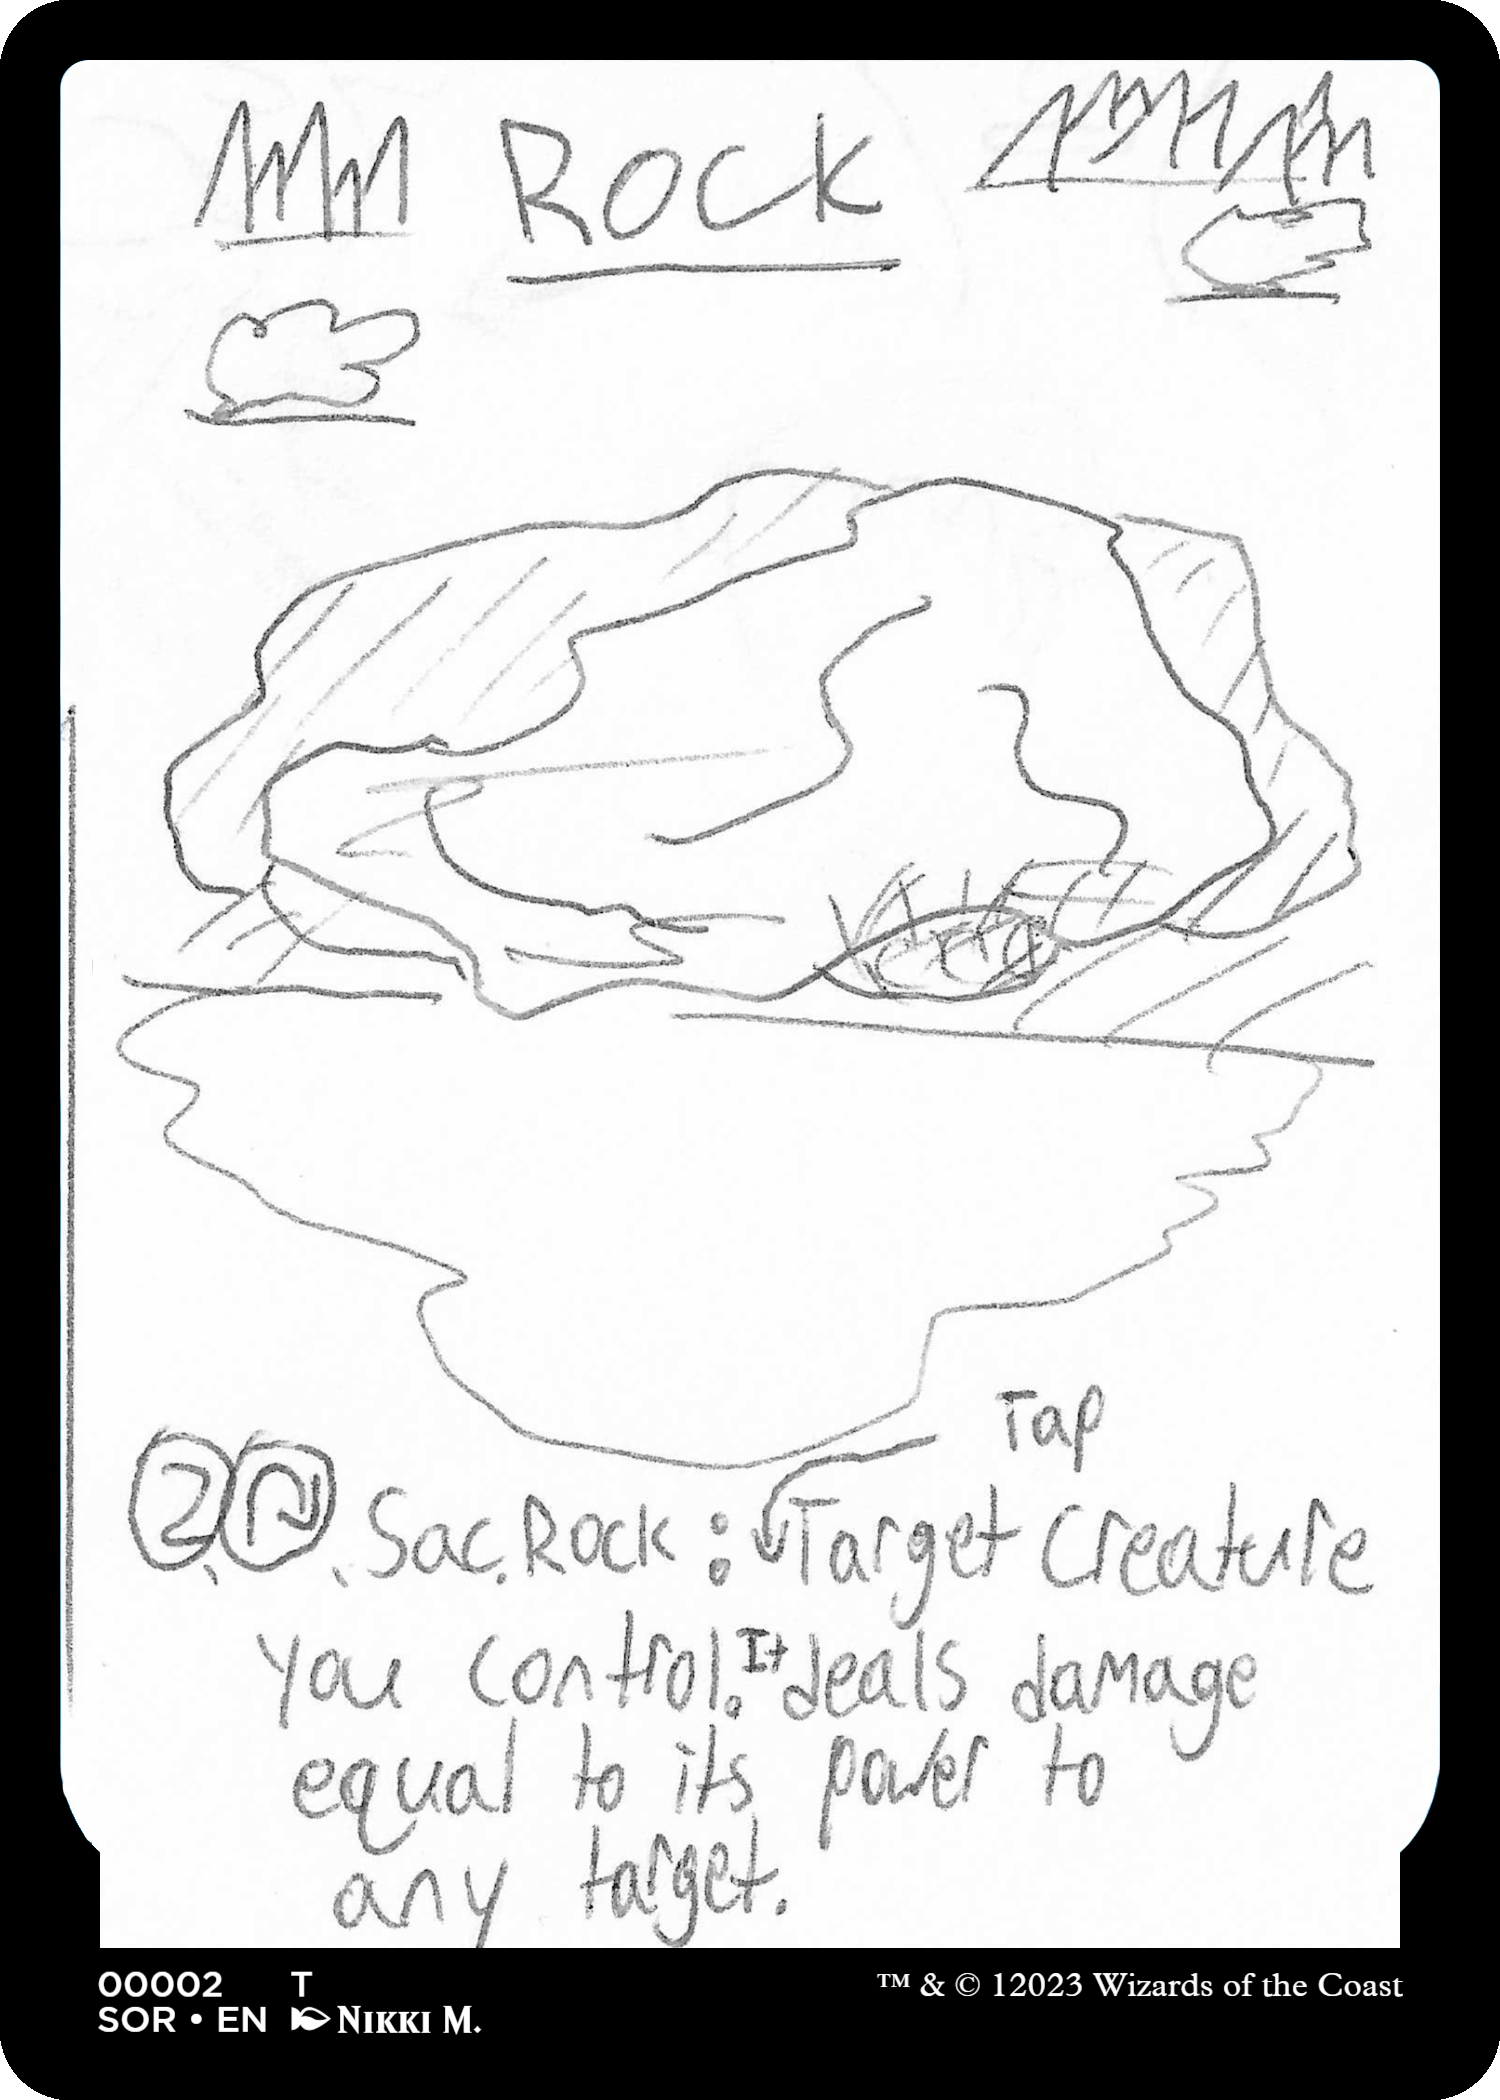 ROCK
Tap
2, , Sac. Rock : Target Creature
you control. It deals damage
equal to its power to
any target.
00002 T
SOR • EN NIKKI M.
™ & © 12023 Wizards of the Coast